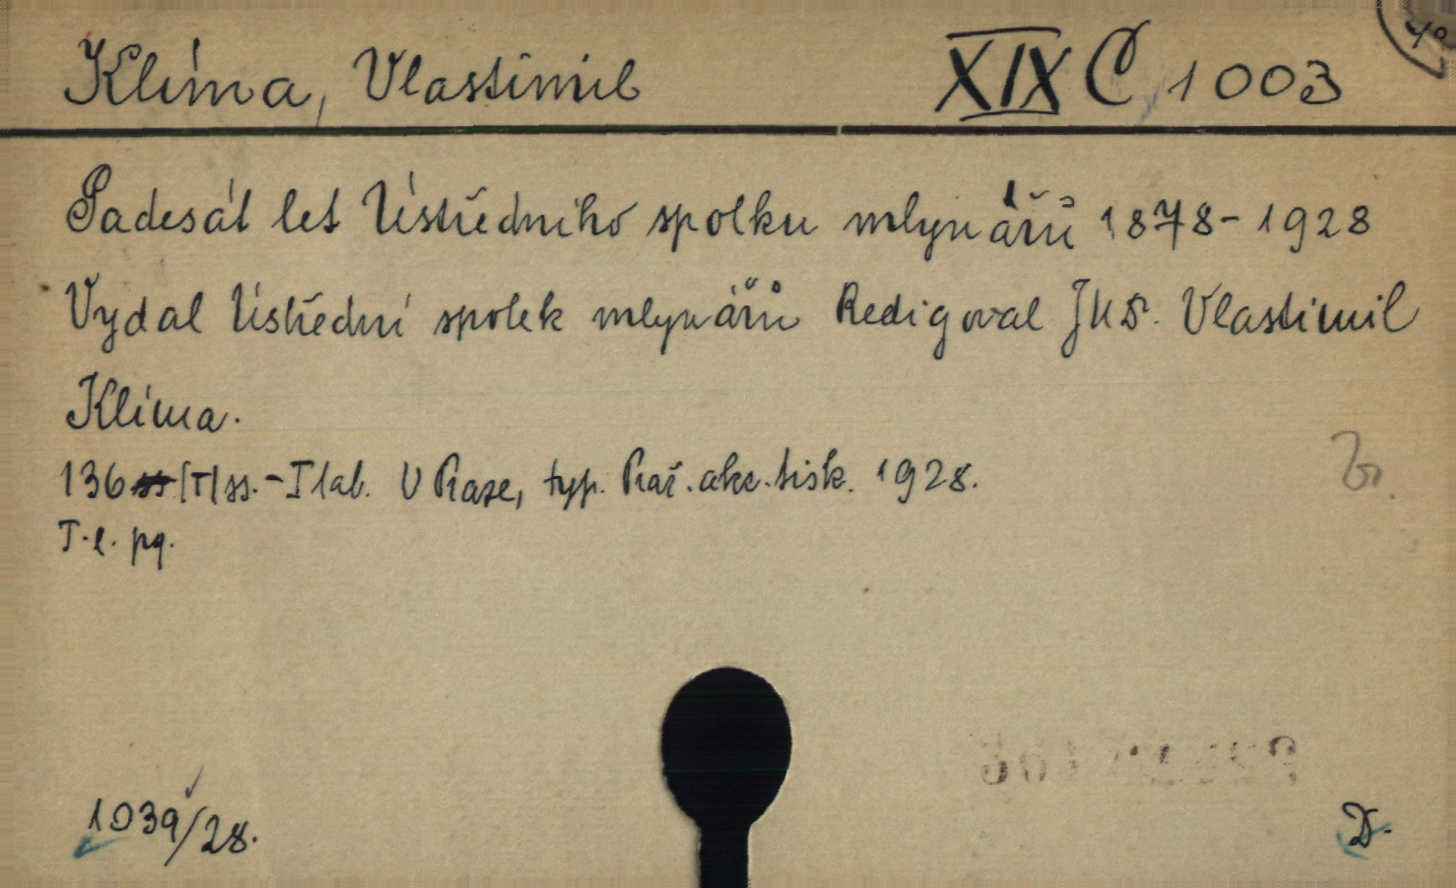 Klíma, Vlastimil XIX C 1003
4°
Padesát let Ústředního spolku mlynářů 1878-1928
Vydal Ústřední spolek mlynářů Redigoval JUDr. Vlastimil
Klíma.
136 [I] ss. - I tab. V Praze, typ. Praž. akc. tisk. 1928.
T. l. pg.
1039/28.
D.